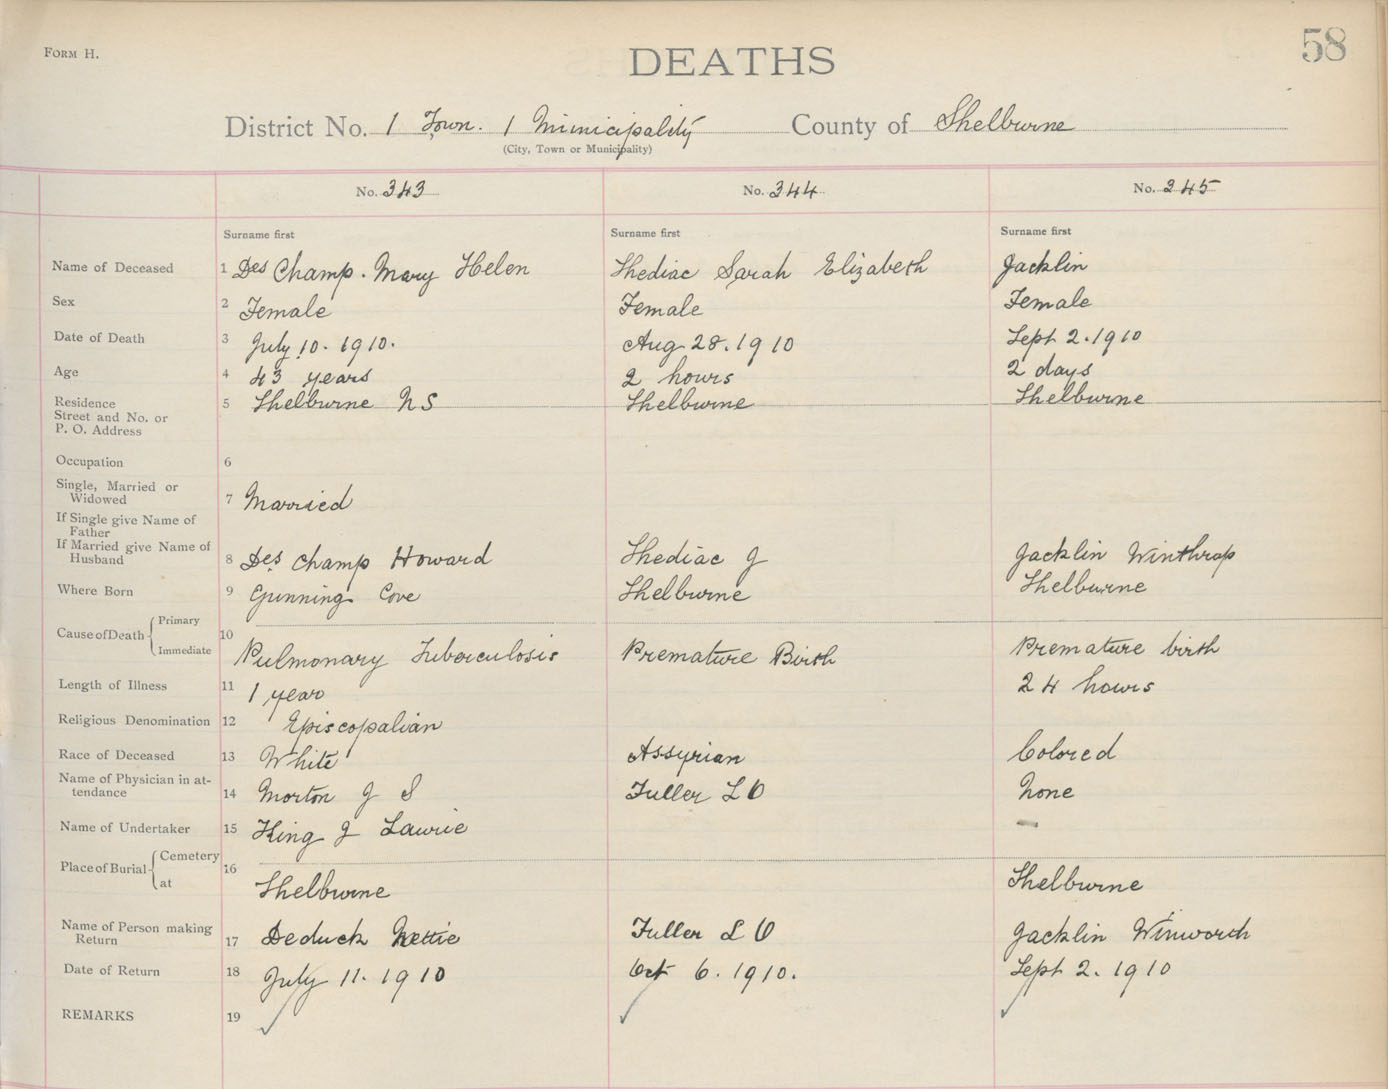 58
Form H.
DEATHS
District No. 1 Town. 1 Municipality County of Shelburne
(City, Town or Municipality)
No. 343 No. 344 No. 345
Surname first Surname first Surname first
Name of Deceased 1 Des Champ. Mary Helen Shediac Sarah Elizabeth Jacklin
Sex 2 Female Female Female
Date of Death 3 July 10. 1910. Aug 28. 1910 Sept 2. 1910
Age 4 43 years 2 hours 2 days
Residence 5 Shelburne NS Shelburne Shelburne
Street and No. or
P. O. Address
Occupation 6
Single, Married or
Widowed 7 Married
If Single give Name of
Father
If Married give Name of
Husband 8 Des Champ Howard Shediac J Jacklin Winthrop
Where Born 9 Gunning Cove Shelburne Shelburne
Cause of Death Primary 10
Immediate Pulmonary Tuberculosis Premature Birth Premature birth
Length of Illness 11 1 year 24 hours
Religious Denomination 12 Episcopalian
Race of Deceased 13 White Assyrian Colored
Name of Physician in at-
tendance 14 Morton J S Fuller L O None
Name of Undertaker 15 King J Lawrie —
Place of Burial Cemetery 16
at Shelburne Shelburne
Name of Person making
Return 17 Deduck Nettie Fuller L O Jacklin Winworth
Date of Return 18 July 11. 1910 Oct 6. 1910. Sept 2. 1910
REMARKS 19 ✓ ✓ ✓